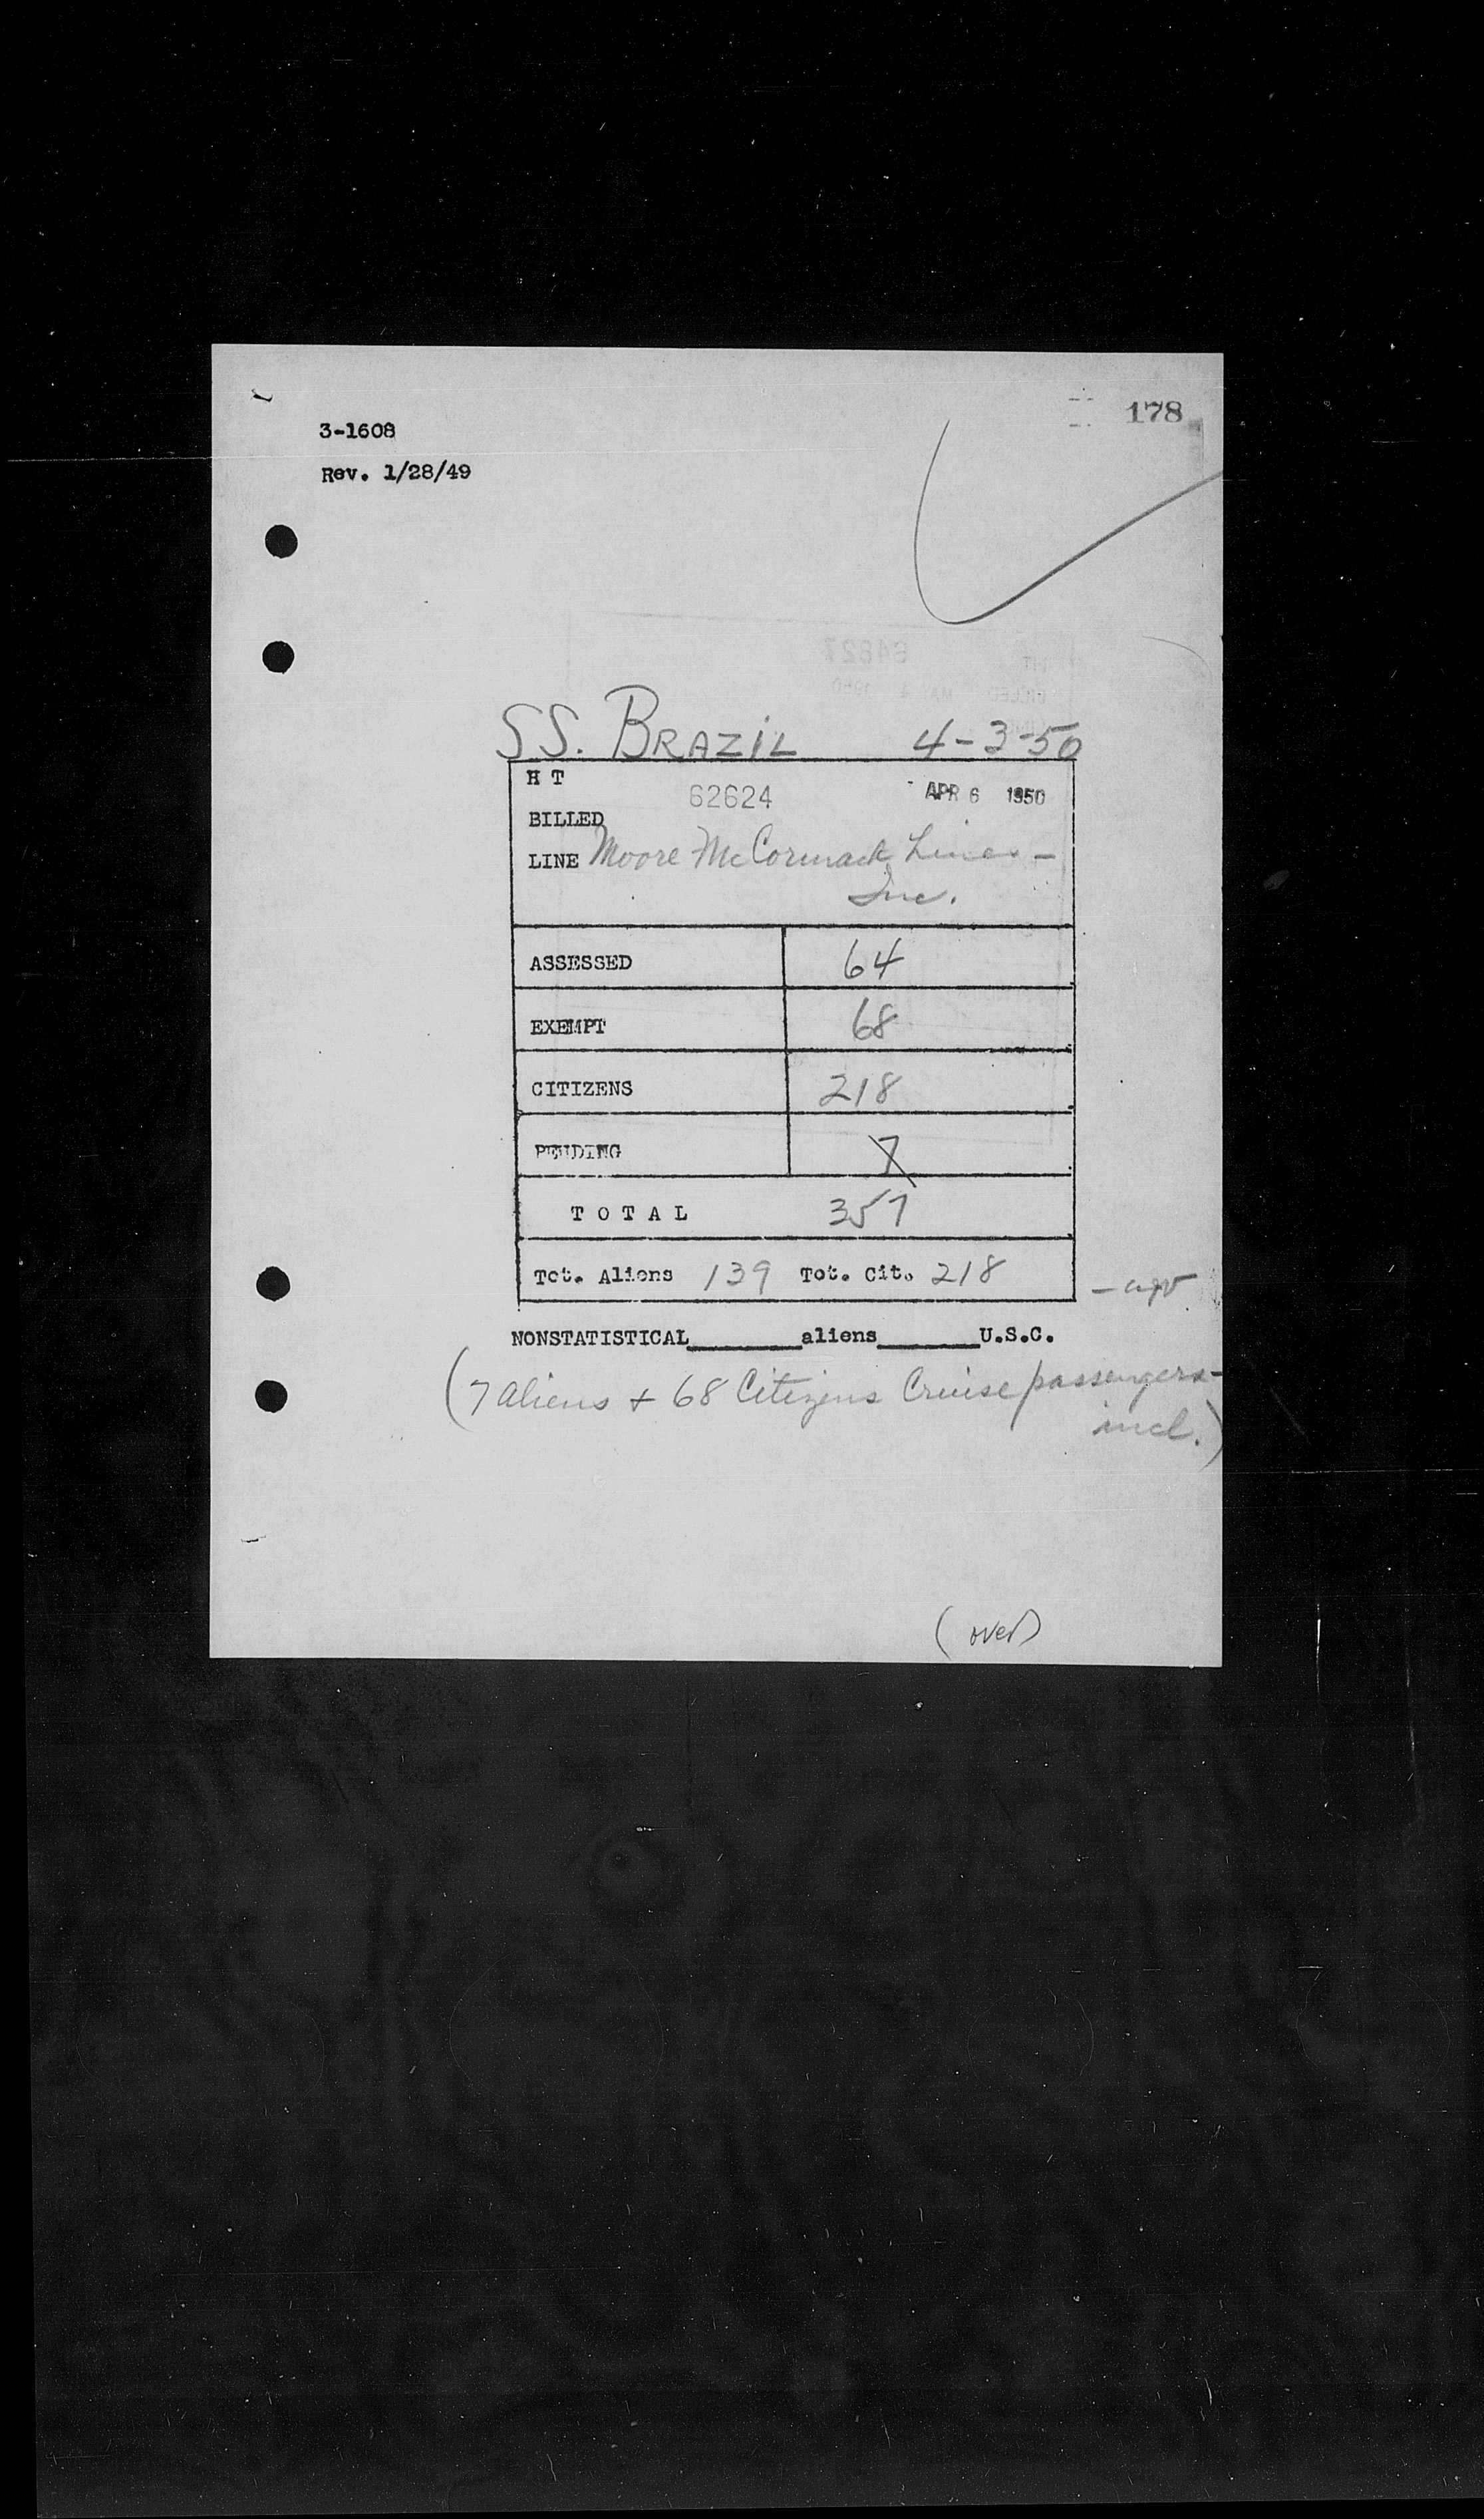 178
3-1608
Rev. 1/28/49
SS. BRAZIL 4-3-50
H T 62624 APR 6 1950
BILLED
LINE Moore McCormack Lines -
Inc.
ASSESSED 64
EXEMPT 68
CITIZENS 218
PENDING 7
TOTAL 357
Tot. Aliens 139 Tot. Cit. 218
NONSTATISTICAL aliens U.S.C.
(7 aliens + 68 Citizens Cruise passengers-
incl.)
(over)